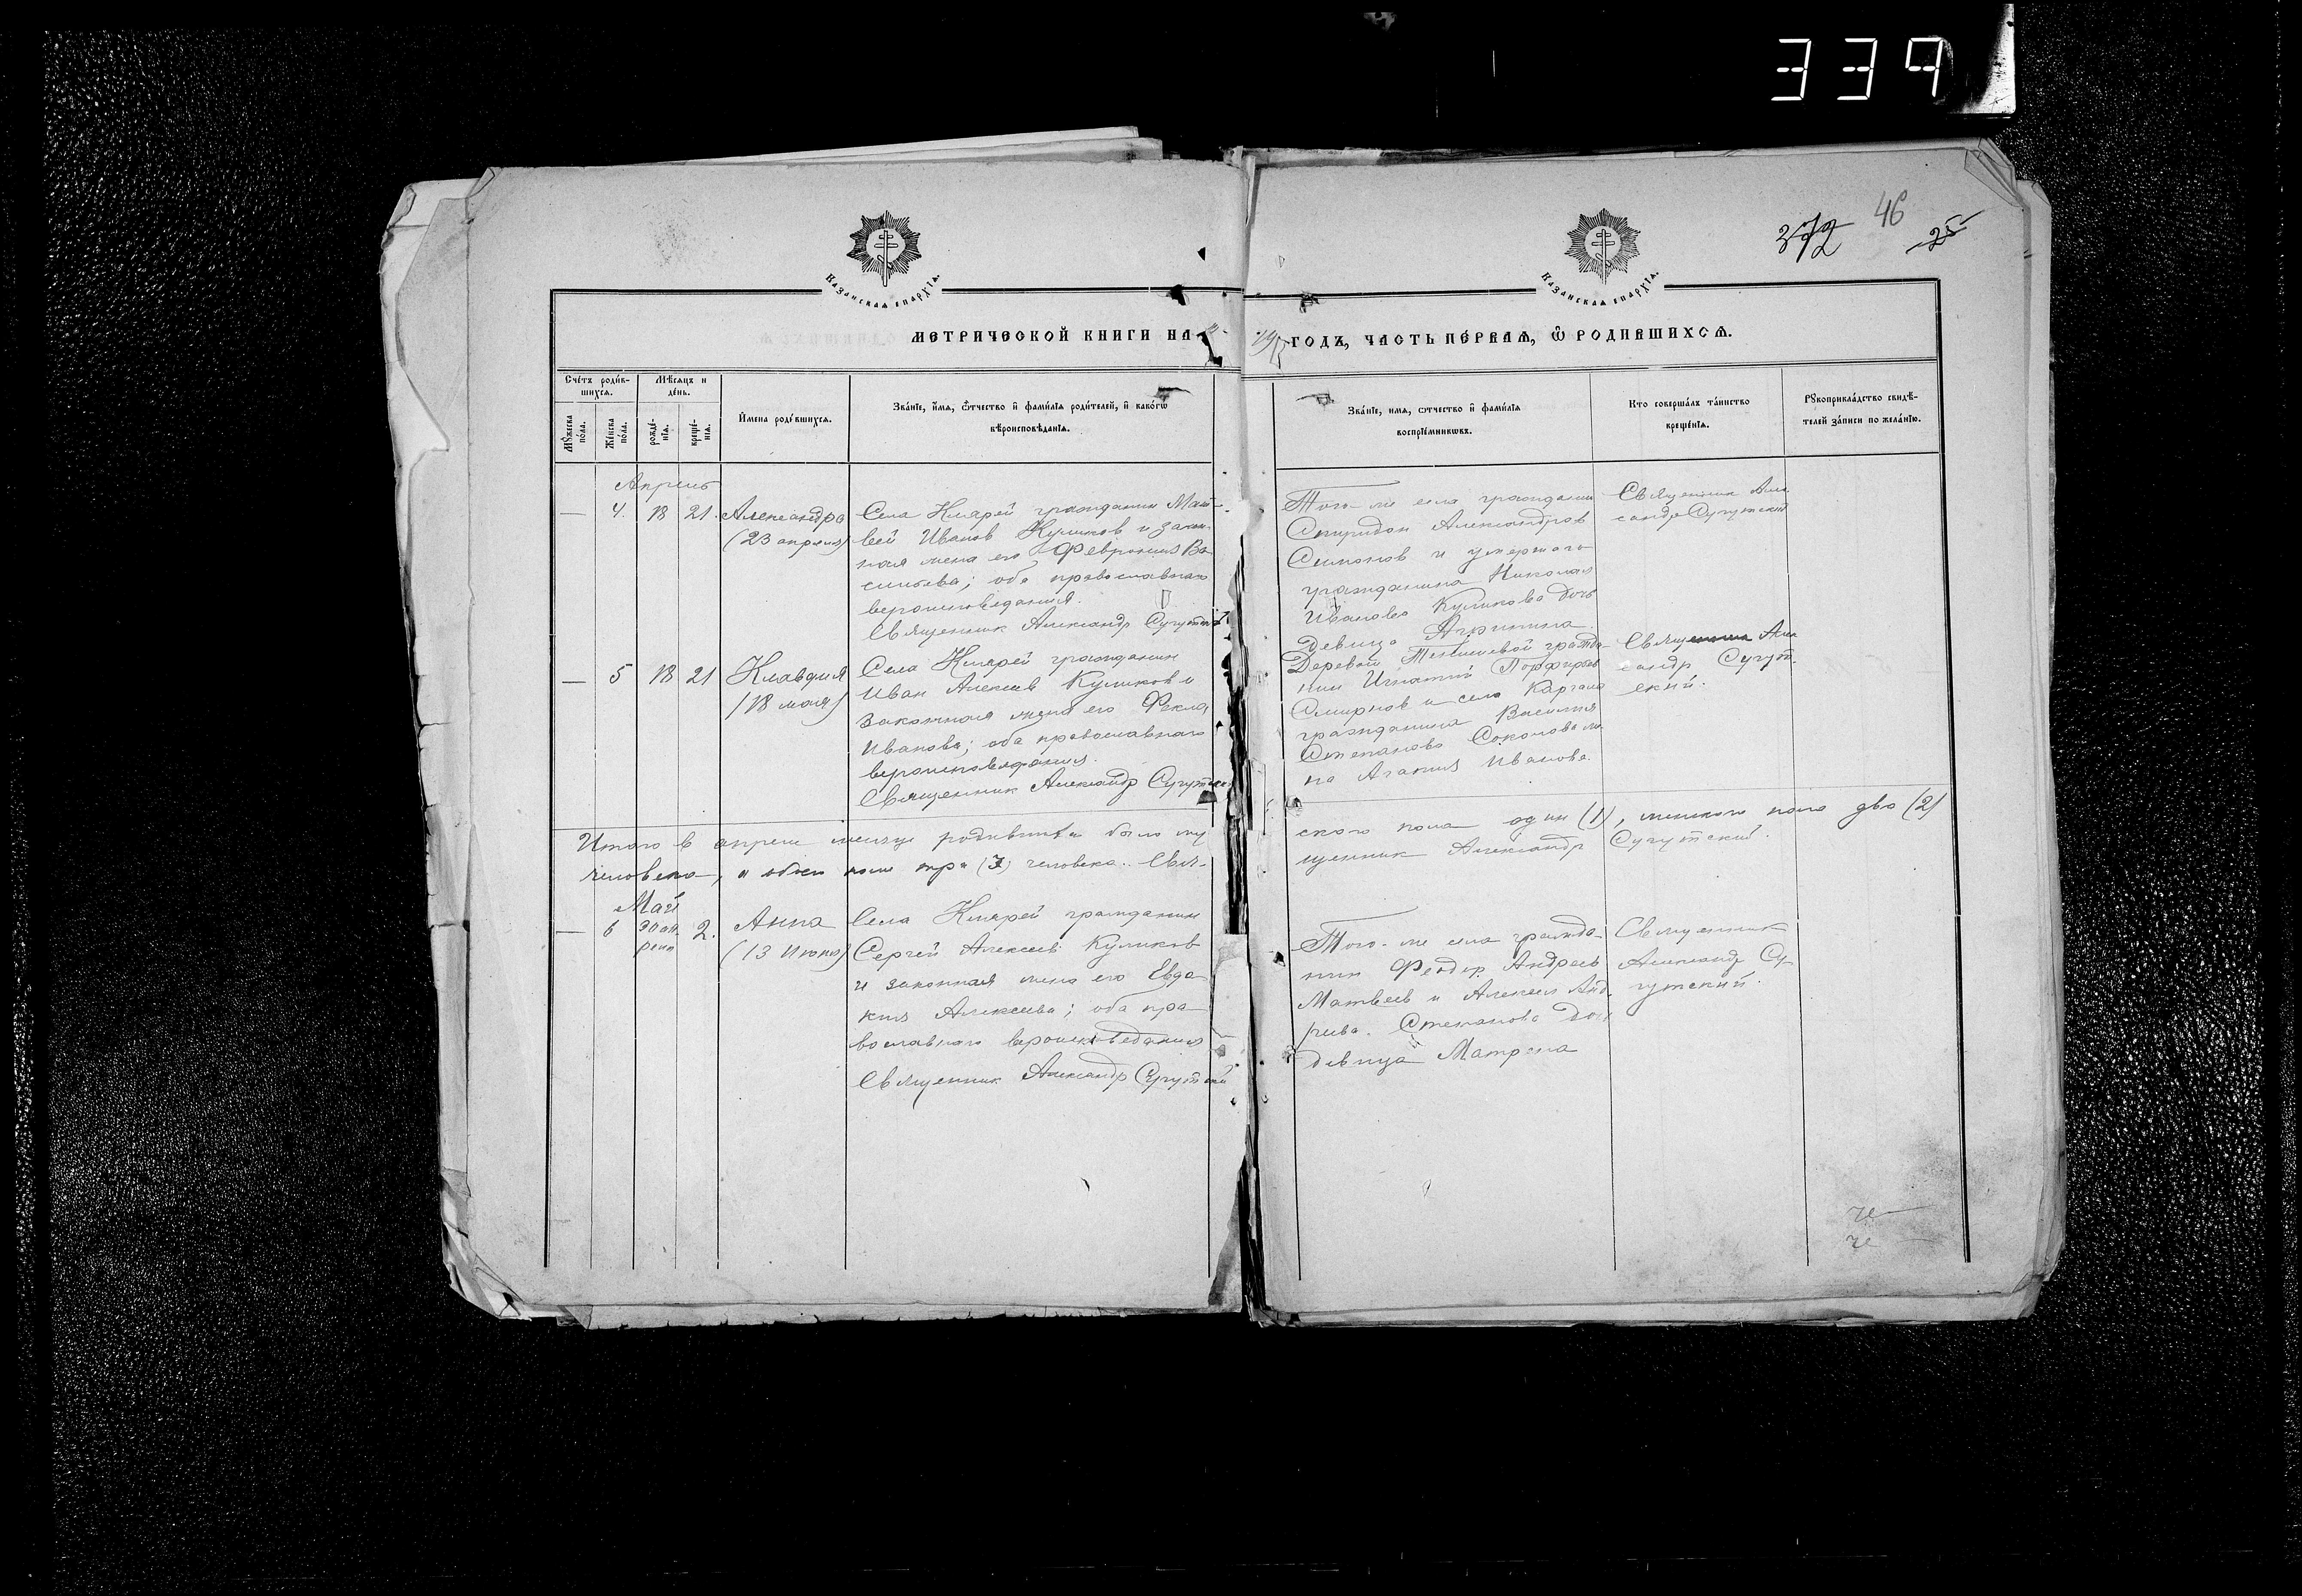 339
46
372
25
Казанская епархїѧ.
Казанская епархїѧ.
МЕТРИЧЕСКОЙ КНИГИ НА
ГОДЪ, ЧАСТЬ ПЕ́РВАЯ, Ѽ РОДИВШИХСѦ.
Сче́тъ роди́в-
шихсѧ.
Мꙋ́жеска по́ла.
Же́нска по́ла.
Мѣ́сѧцъ и
де́нь.
рожде́-нїѧ.
креще́-нїѧ.
И́мена роди́вшихсѧ.
Зва́нїе, и́мѧ, ѻ҆́тчество и҆ фами́лїѧ роди́телей, и҆ како́гѡ
вѣроисповѣ́данїѧ.
Зва́нїе, имѧ, ѻтчество и҆ фами́лїѧ
воспрїе́мникѡвъ.
Кто соверша́лъ та́инство
креще́нїѧ.
Рꙋкоприкла́дство свидѣ́-
телей за́писи по жела́нїю.
Апрель
— 4. 18 21. Александра
(23 апреля)
Села Клярей гражданин Мат-
вей Иванов Куликов и закон-
ная жена его Феврония Ва-
сильева; оба православнаго
вероисповедания.
Священник Александр Сугутский
Того-же села гражданин
Спиридон Александров
Симонов и умершаго
гражданина Николая
Иванова Куликова дочь
девица Агрипина.
Священник Алек
сандр Сугутский
— 5 18 21 Клавдия
(18 мая)
Села Клярей гражданин
Иван Алексеев Куликов и
законная жена его Фекла
Иванова; оба православнаго
вероисповедания.
Священник Александр Сугутский
Деревни гражда-
нин Игнатий Порфирьев
Смирнов и села Каргала
гражданина Василия
Степанова Соколова же-
на Агапия Иванова.
Священник Алек
сандр Сугут-
ский.
Итого в апреле месяце родившихся было му
ского пола один (1), женскаго пола два (2)
человека, а обоего пола три (3) человека. Свя-
щенник Александр Сугутский.
Май
— 6 30 ап-
реля 2. Анна
(13 июня)
Села Клярей гражданин
Сергей Алексеев Куликов
и законная жена его Евдо-
кия Алексеева; оба пра-
вославнаго вероисповедания
Священник Александр Сугутский
Того-же села гражда-
нин Феодор Андреев
Матвеев и Алексея Анд-
реева Степанова дочь
девица Матрена
Священник
Александр Су-
гутский.